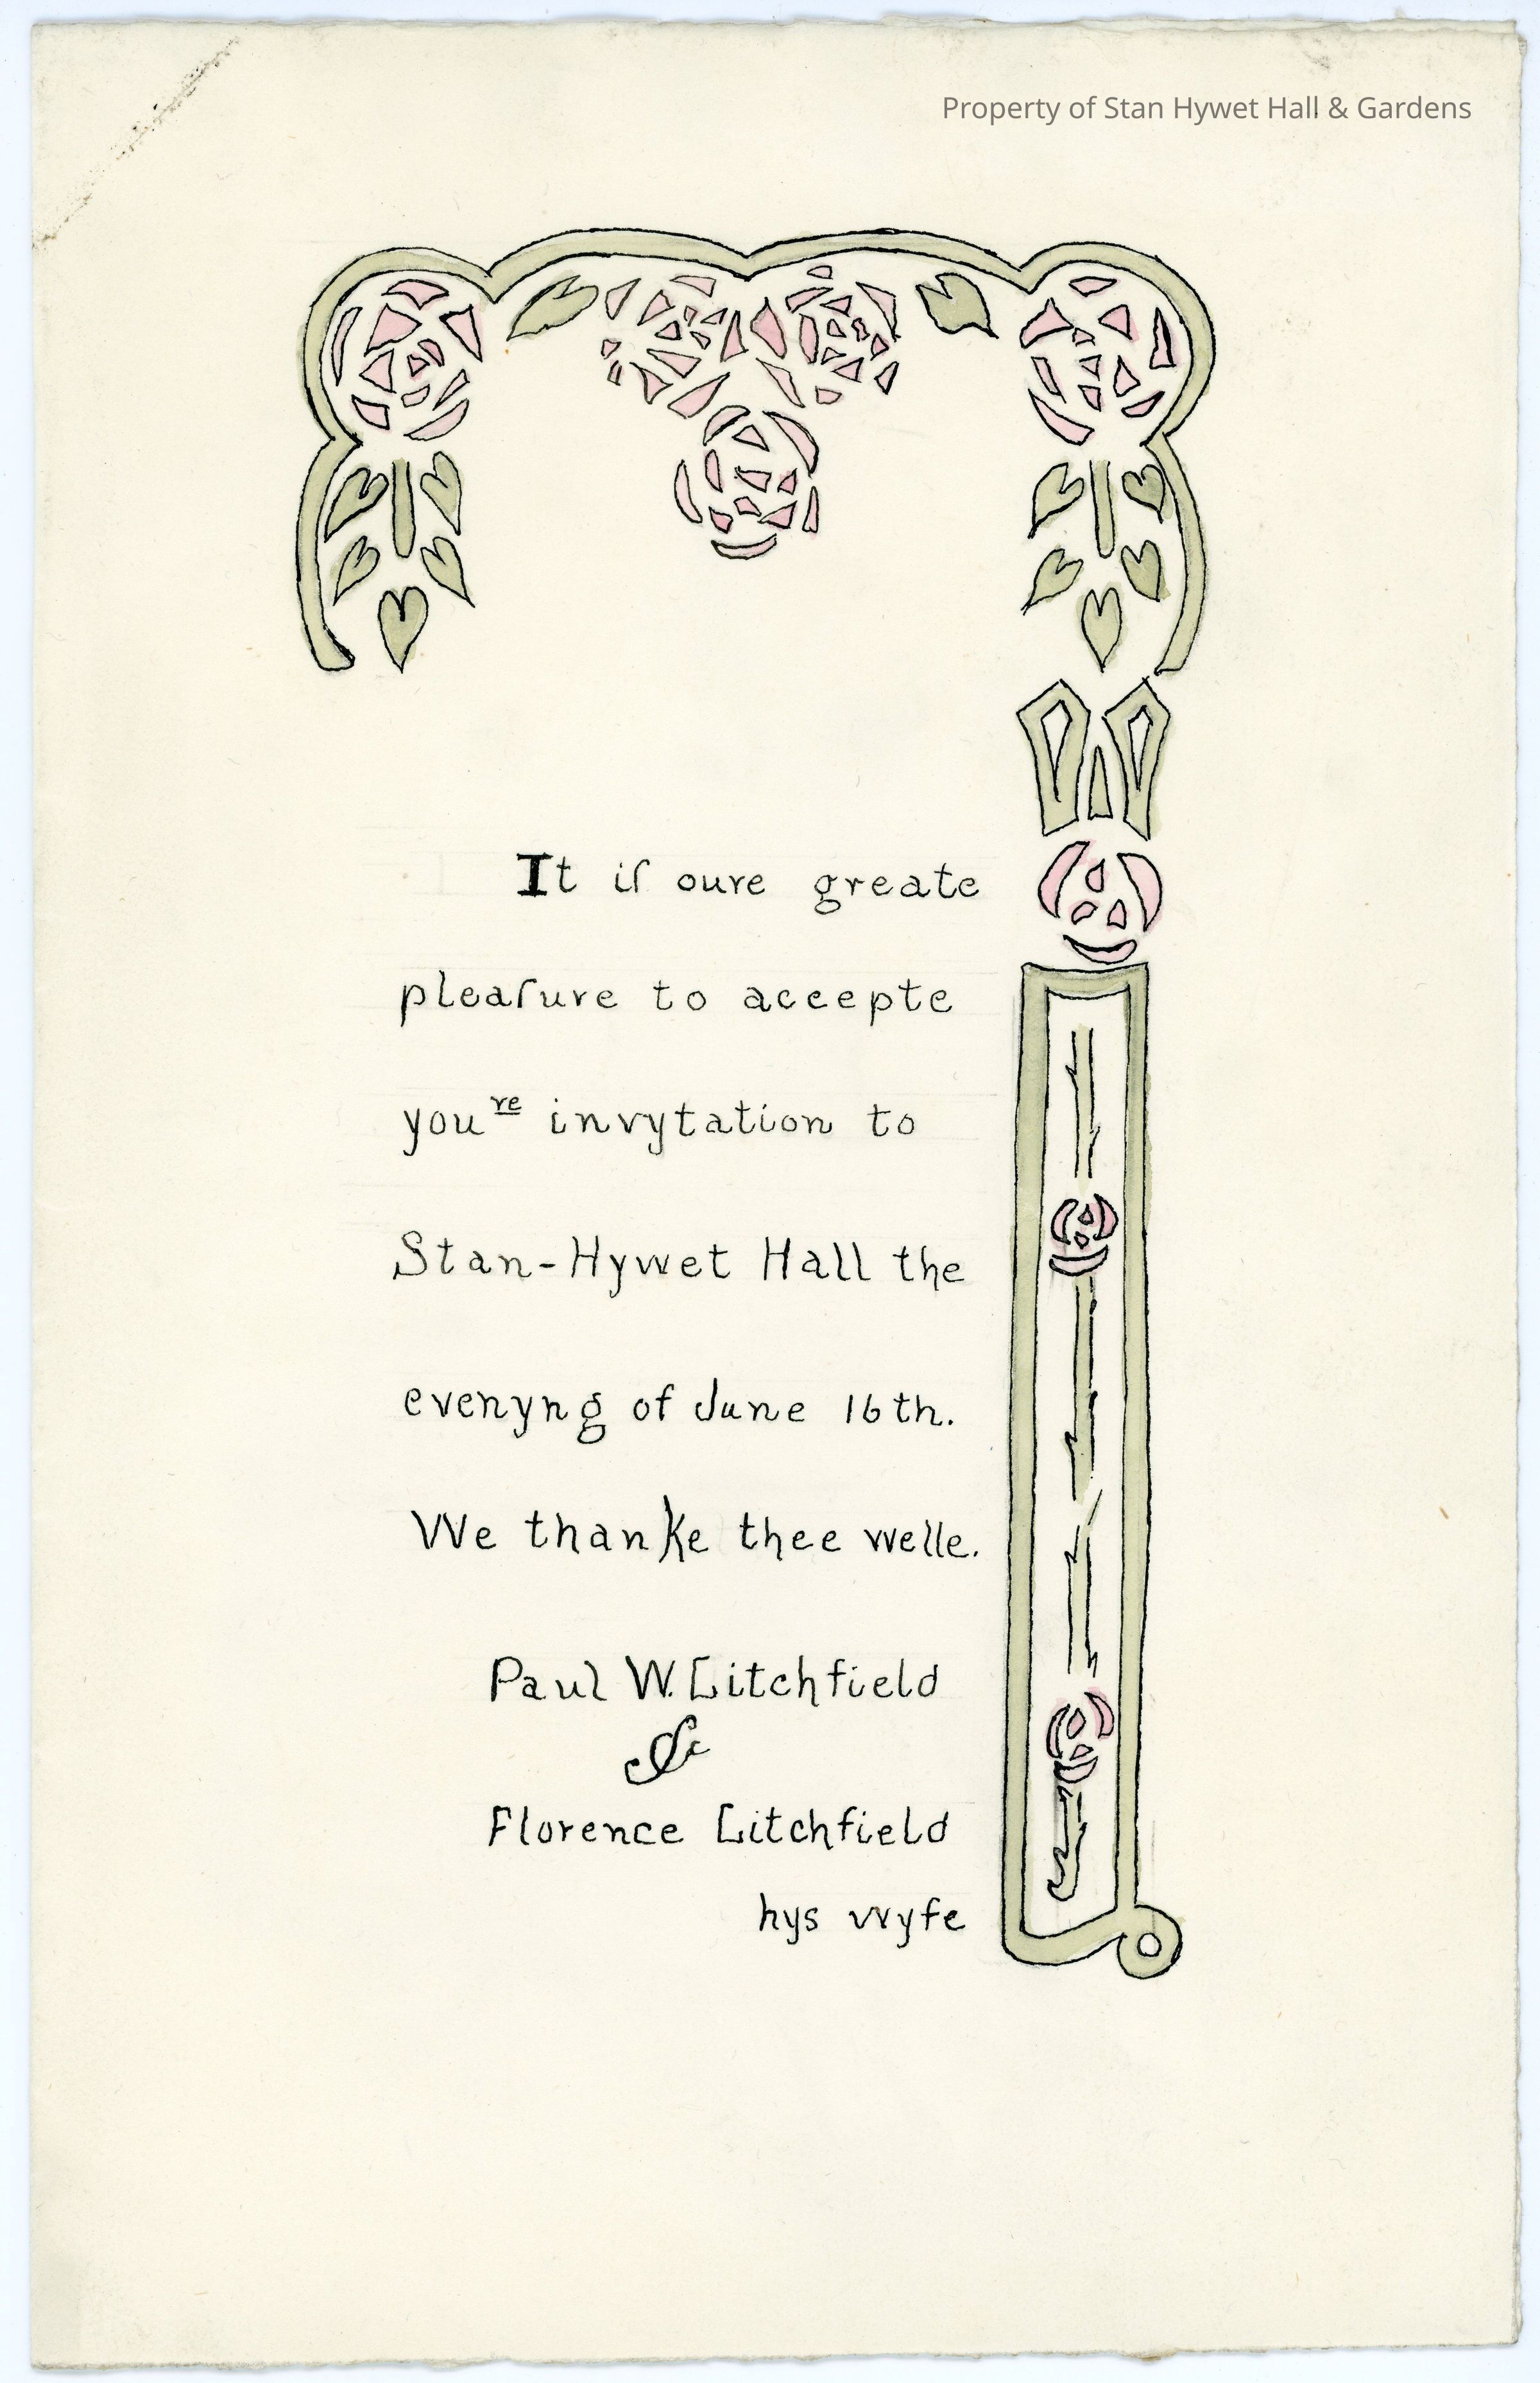 Property of Stan Hywet Hall & Gardens
It iſ oure greate
pleaſure to accepte
youre invytation to
Stan-Hywet Hall the
evenyng of June 16th.
We thanke thee welle.
Paul W. Litchfield
&
Florence Litchfield
hys wyfe